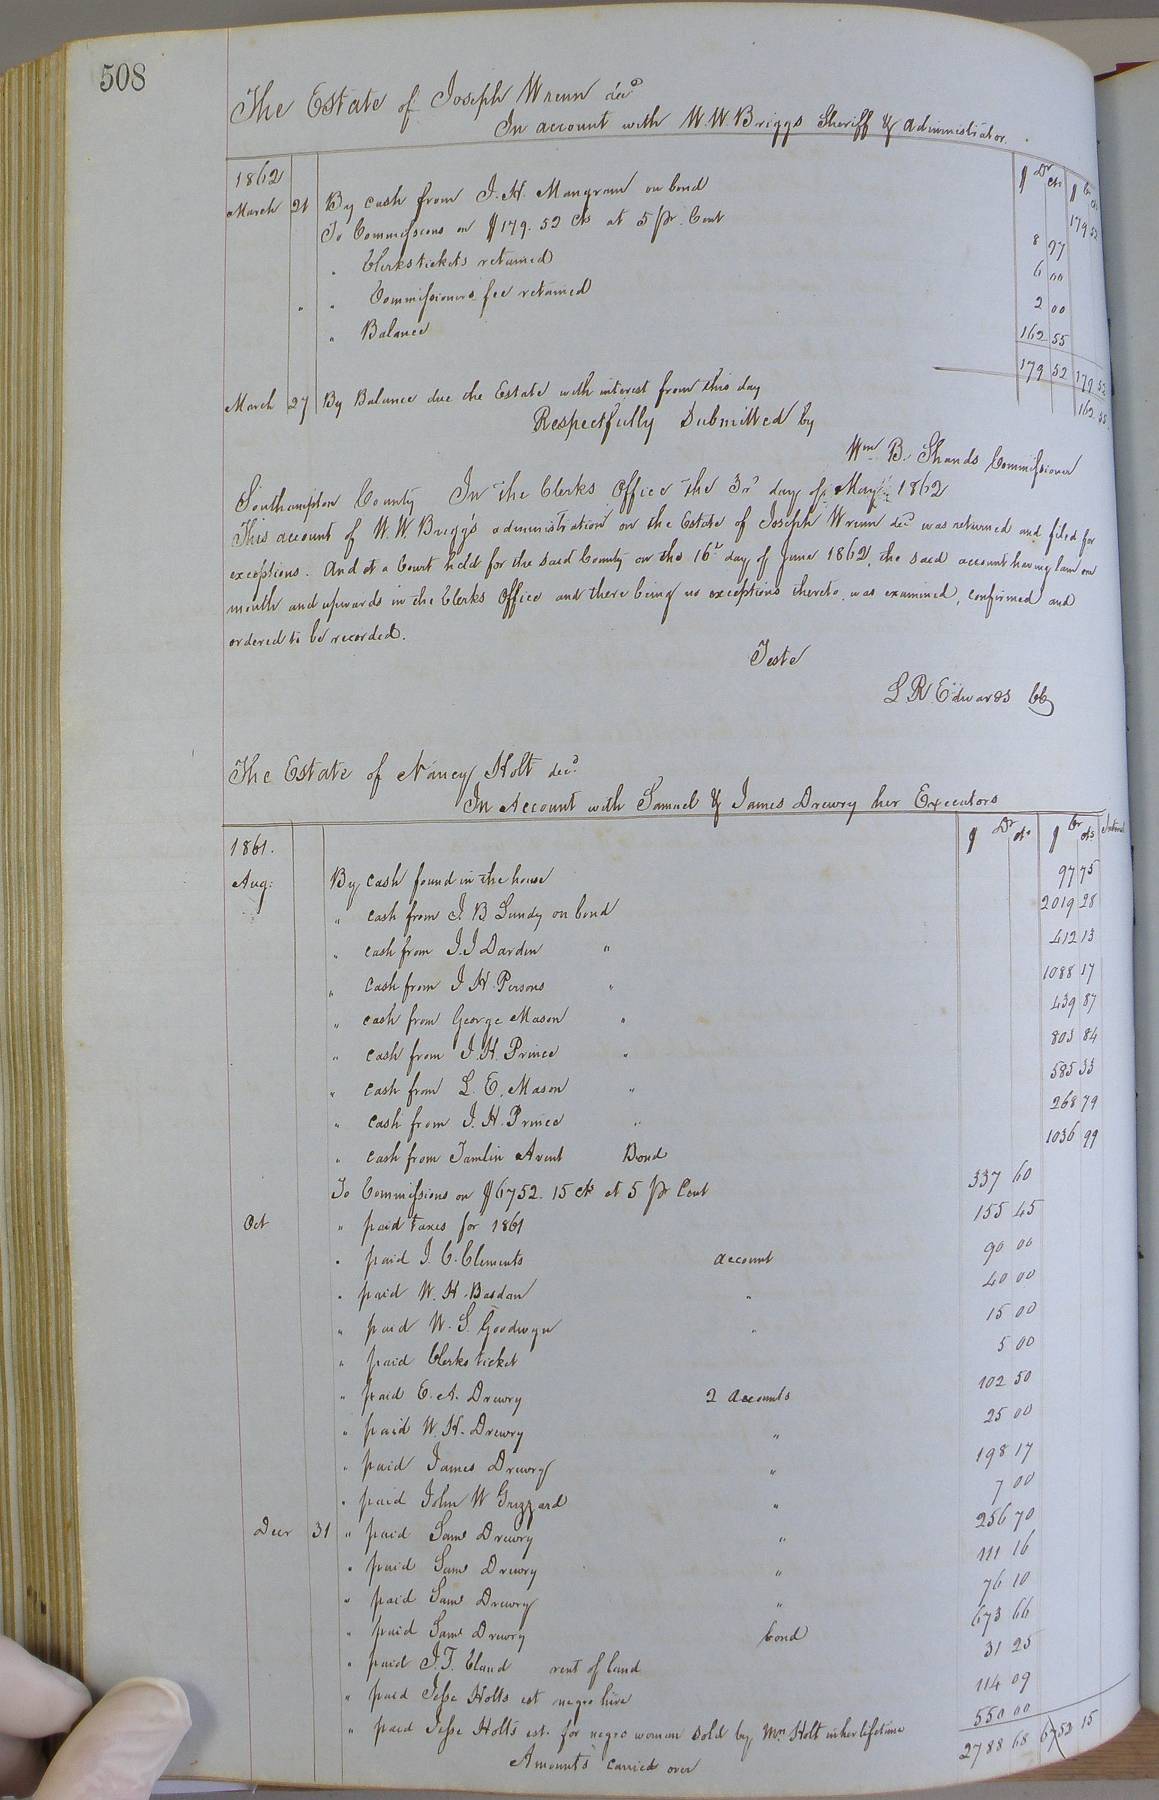 508
The Estate of Joseph Wrenn decd
In account with W. W Briggs Sheriff & administrator.
$ Dr cts $ Cr cts
1862
March 21 By cash from J. H. Mangram on bond 179 52
To Commissions on $179. 52 cts at 5 pr. Cent 8 97
" Clerks tickets retained 6 00
" " Commissioners fee retained 2 00
" Balance 162 55
179 52 179 52
March 27 By Balance due the Estate with interest from this day 162 55
Respectfully Submitted by
Wm B. Shands Commissioner
Southampton County In the Clerks Office the 3rd day of May 1862
This account of W. W. Briggs administration on the Estate of Joseph Wrenn decd was returned and filed for
exceptions. And at a Court held for the said County on the 16th day of June 1862, the said account having lain one
month and upwards in the Clerks Office and there being no exceptions thereto, was examined, confirmed and
ordered to be recorded.
Teste
L R Edwards CC
The Estate of Nancy Holt decd
In Account with Samuel & James Drewry her Executors
$ Dr cts $ Cr cts Interest
1861.
Aug: By cash found in the house 97 75
" cash from J. B. Lundy on bond 2019 28
" cash from J. J Darden " 412 13
" cash from J H. Persons " 1088 17
" cash from George Mason " 439 87
" cash from J. H. Prince " 803 84
" cash from L. E. Mason " 585 33
" cash from J. H. Prince " 268 79
" cash from Tamlin Avent Bond 1036 99
To Commissions on $6752. 15 cts at 5 pr Cent 337 60
Oct " paid taxes for 1861 155 45
" paid J. C. Clements account 90 00
" paid W. H. " 40 00
" paid W. S. Goodwyn " 15 00
" paid Clerks ticket 5 00
" paid E. A. Drewry 2 accounts 102 50
" paid W. H. Drewry " 25 00
" paid James Drewry " 198 17
" paid John W Grizzard " 7 00
Decr 31 " paid Saml Drewry " 256 70
" paid Saml Drewry " 111 16
" paid Saml Drewry " 76 10
" paid Saml Drewry bond 673 66
" paid J. T. Eland rent of land 31 25
" paid Jesse Holts est negro hire 114 09
" paid Jesse Holts est. for negro woman sold by Mrs Holt in her lifetime 550 00
Amounts carried over 2788 68 6752 15